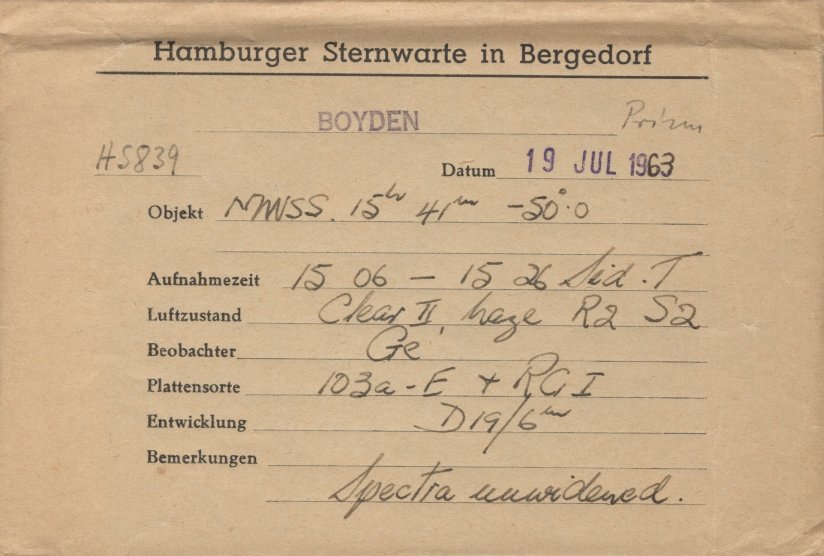 Hamburger Sternwarte in Bergedorf
BOYDEN Prism
HS839
Datum 19 JUL 1963
Objekt MWSS. 15hr 41m -50°.0
Aufnahmezeit 15 06 — 15 26 Sid. T
Luftzustand Clear II, haze R2 S2
Beobachter Ge
Plattensorte 103a-E + RG I
Entwicklung D19/6m
Bemerkungen
Spectra unwidened.